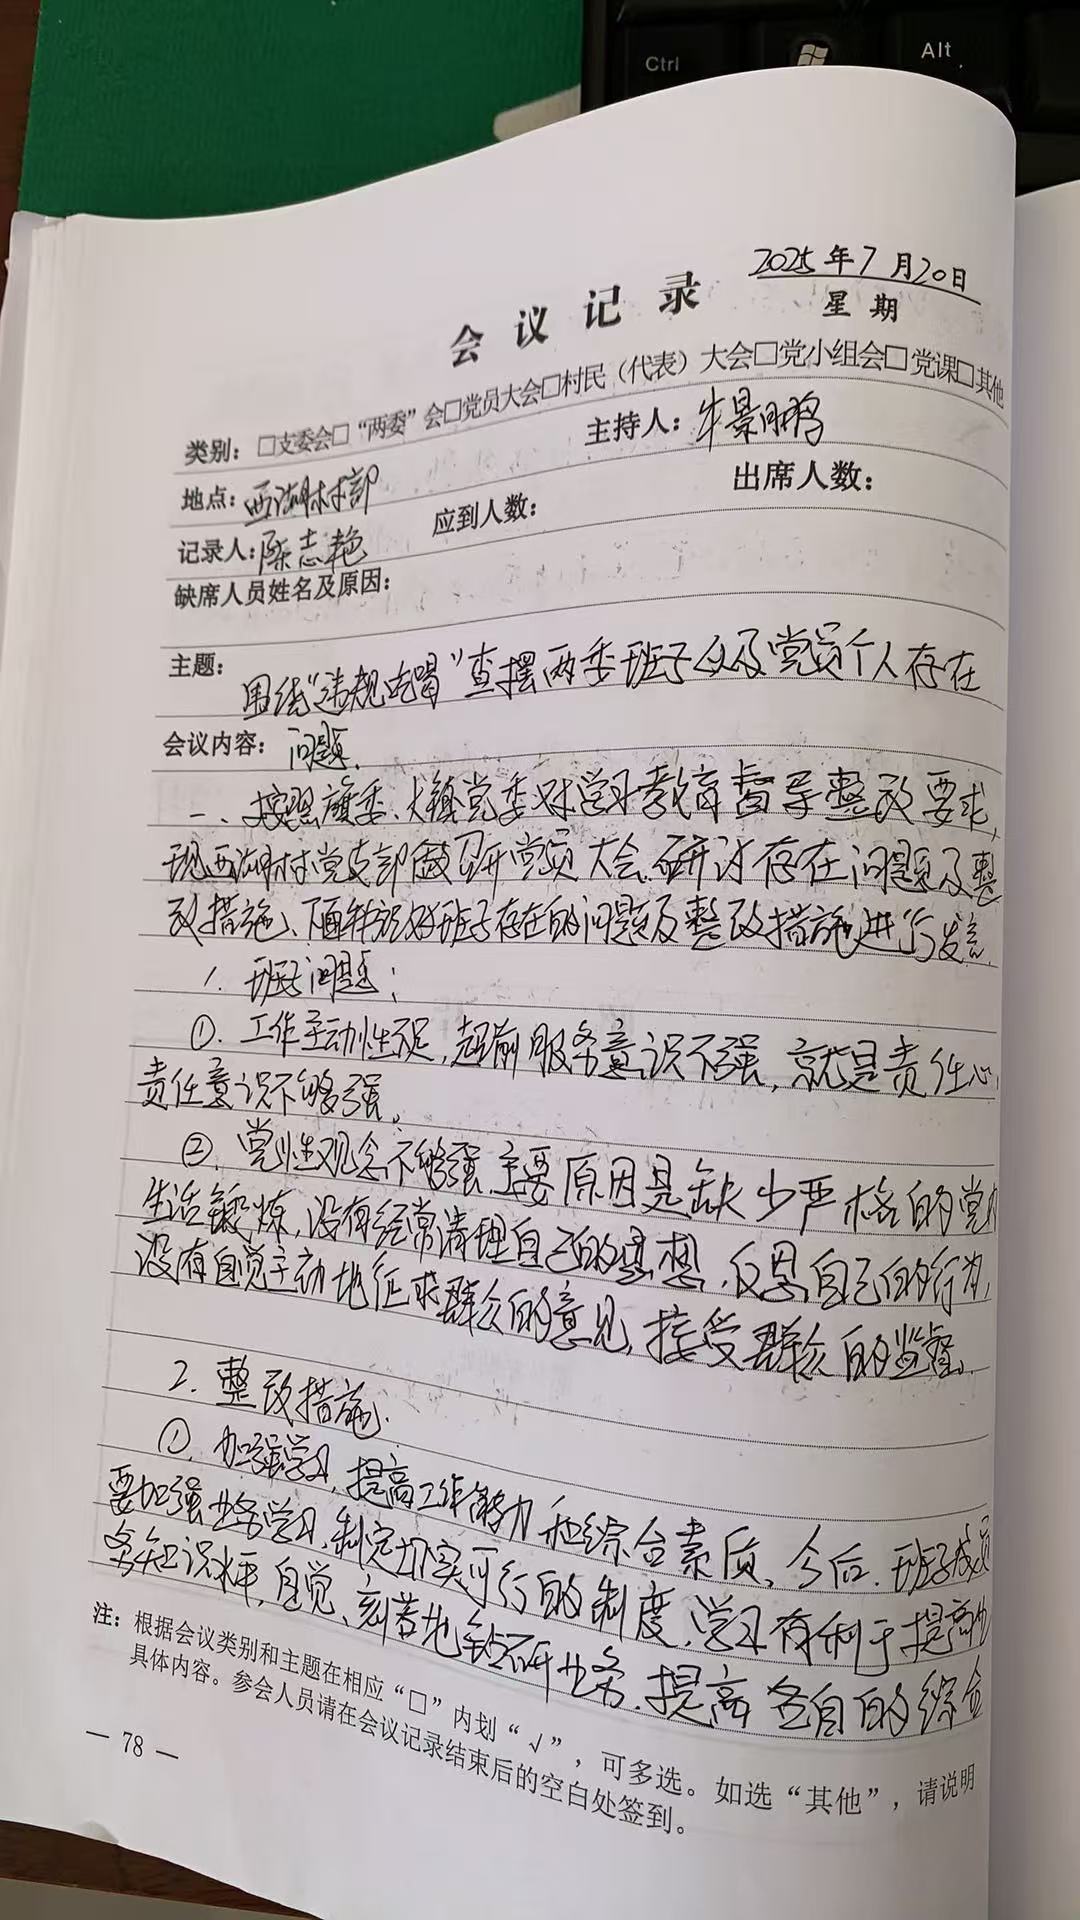 Ctrl
Alt
2025年7月20日
会议记录
星期
类别：□支委会□“两委”会□党员大会□村民（代表）大会□党小组会□党课□其他
地点：西湖村村部
主持人：牛景鹏
记录人：陈志艳
应到人数：
出席人数：
缺席人员姓名及原因：
主题：围绕“违规吃喝”查摆两委班子以及党员个人存在
会议内容：问题.
一、按照旗委、大镇党委对学习教育督导整改要求，
现西湖村党支部召开党员大会，研讨存在问题及整
改措施、下面我班子存在的问题及整改措施进行发言.
1. 班子问题；
①. 工作主动性不足，超前服务意识不强，就是责任心，
责任意识不够强。
②. 党性观念不够强，主要原因是缺少严格的党内
生活锻炼，没有经常清理自己的思想，反思自己的行为，
没有自觉主动地征求群众的意见，接受群众的监督。
2. 整改措施.
①. 加强学习，提高工作能力和综合素质，今后，班子成员
要加强业务学习，制定切实可行的制度，学习有利于提高业
务知识水平，自觉、刻苦地钻研业务，提高各自的综合
注：根据会议类别和主题在相应“□”内划“√”，可多选。如选“其他”，请说明
具体内容。参会人员请在会议记录结束后的空白处签到。
— 78 —